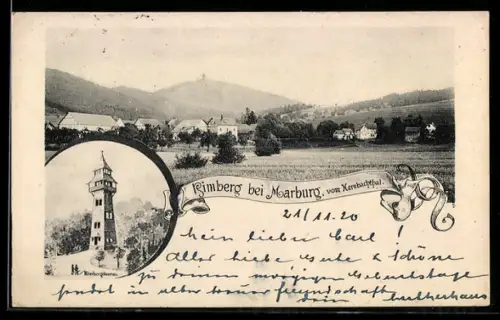 Rimberg bei Marburg, vom Kernbachthal.
21/11.20
Mein lieber Carl!
Aller liebe Gute & Schöne
zu deinem morgigen Geburtstage
sendet in alter treuer Freundschaft
dein